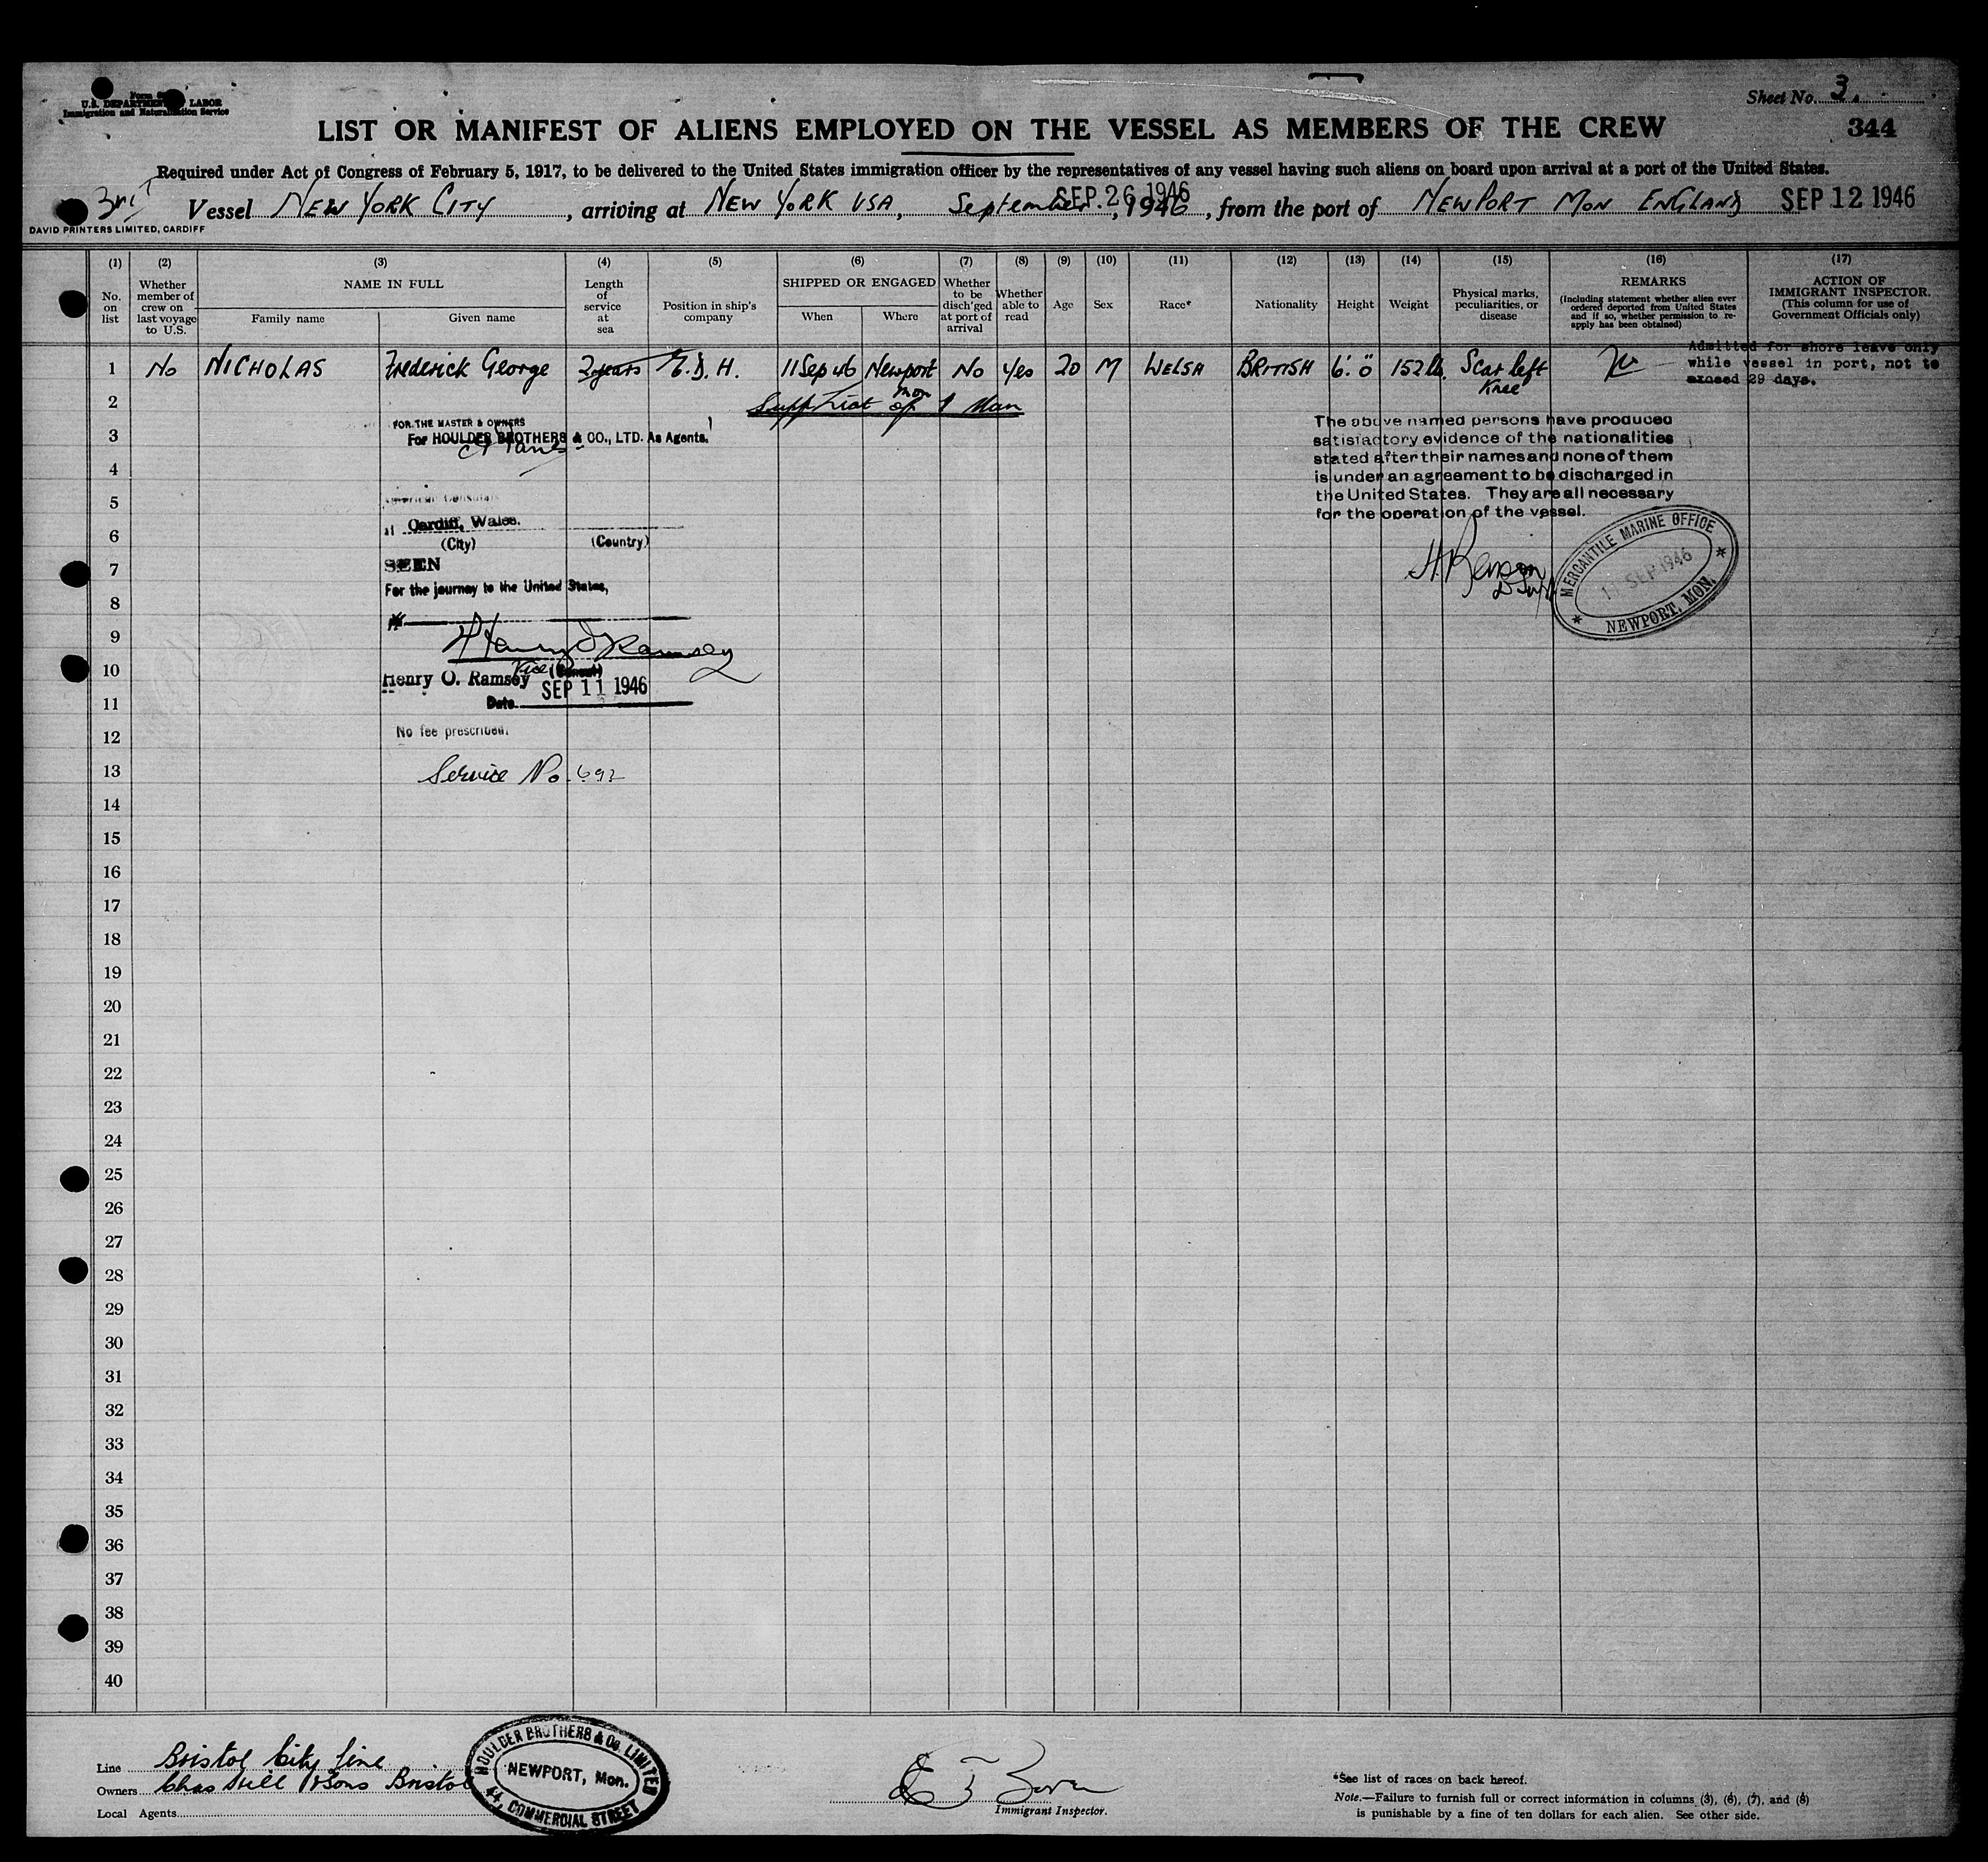 U.S. DEPARTMENT LABOR
Immigration and Naturalization Service
Sheet No. 3
LIST OR MANIFEST OF ALIENS EMPLOYED ON THE VESSEL AS MEMBERS OF THE CREW
344
Required under Act of Congress of February 5, 1917, to be delivered to the United States immigration officer by the representatives of any vessel having such aliens on board upon arrival at a port of the United States.
Vessel NEW YORK CITY, arriving at NEW YORK USA, September SEP. 26 1946, 1946, from the port of NEWPORT MON ENGLAND SEP 12 1946
DAVID PRINTERS LIMITED, CARDIFF
(1) No. on list
(2) Whether member of crew on last voyage to U.S.
(3) NAME IN FULL
Family name
Given name
(4) Length of service at sea
(5) Position in ship's company
(6) SHIPPED OR ENGAGED
When
Where
(7) Whether to be disch'ged at port of arrival
(8) Whether able to read
(9) Age
(10) Sex
(11) Race*
(12) Nationality
(13) Height
(14) Weight
(15) Physical marks, peculiarities, or disease
(16) REMARKS
(Including statement whether alien ever ordered deported from United States and if so, whether permission to re-apply has been obtained)
(17) ACTION OF IMMIGRANT INSPECTOR.
(This column for use of Government Officials only)
1 No NICHOLAS Frederick George 2 years E.D.H. 11 Sep 46 Newport Mon No Yes 20 M WELSH BRITISH 6'.0" 152 lb. Scar left Knee
Admitted for shore leave only
while vessel in port, not to
exceed 29 days.
2 Supp List of 1 Man
FOR THE MASTER & OWNERS
For HOULDER BROTHERS & CO., LTD. As Agents.
The above named persons have produced
satisfactory evidence of the nationalities
stated after their names and none of them
is under an agreement to be discharged in
the United States. They are all necessary
for the operation of the vessel.
American Consulate
Cardiff, Wales.
(City) (Country)
SEEN
For the journey to the United States,
Henry O Ramsey
Vice (Consul)
Henry O. Ramsey
SEP 11 1946
Date
No fee prescribed.
Service No. 692
MERCANTILE MARINE OFFICE
11 SEP 1946
NEWPORT, MON.
3
4
5
6
7
8
9
10
11
12
13
14
15
16
17
18
19
20
21
22
23
24
25
26
27
28
29
30
31
32
33
34
35
36
37
38
39
40
Line Bristol City Line
Owners Chas Hill & Sons Bristol
Local Agents
HOULDER BROTHERS & Co. LIMITED
NEWPORT, Mon.
44, COMMERCIAL STREET
Immigrant Inspector.
*See list of races on back hereof.
Note.—Failure to furnish full or correct information in columns (3), (6), (7), and (8)
is punishable by a fine of ten dollars for each alien. See other side.